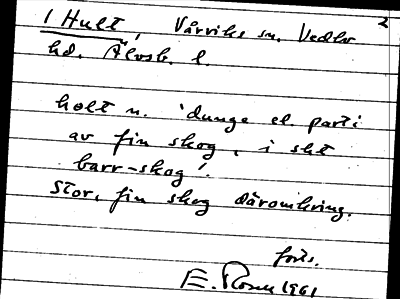 2
1 Hult, Vårviks sn. Vedbo
hd. Älvsb. l.
holt n. 'dunge el parti
av fin skog, i sht
barr-skog'.
Stor, fin skog däromkring.
forts.
E. Rosell 1961